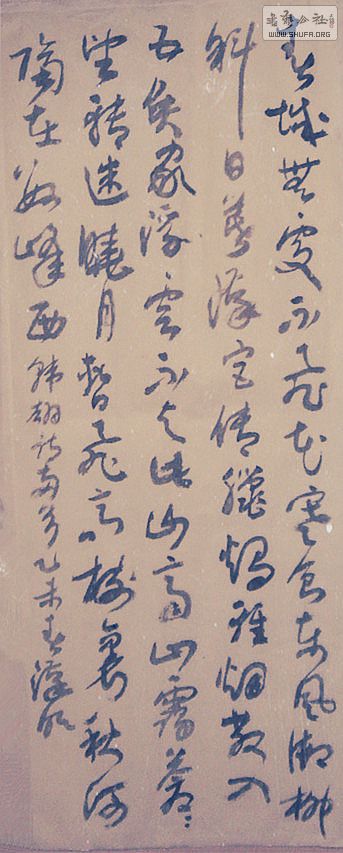 書法公社
WWW.SHUFA.ORG
春城無處不飛花寒食東風御柳
斜日暮漢宮傳蠟燭輕烟散入
五侯家浮雲不与此山齊山靄蒼〻
望轉迷曉月暫飛高樹裏秋河
隔在數峰西 韓翃詩兩首乙未春